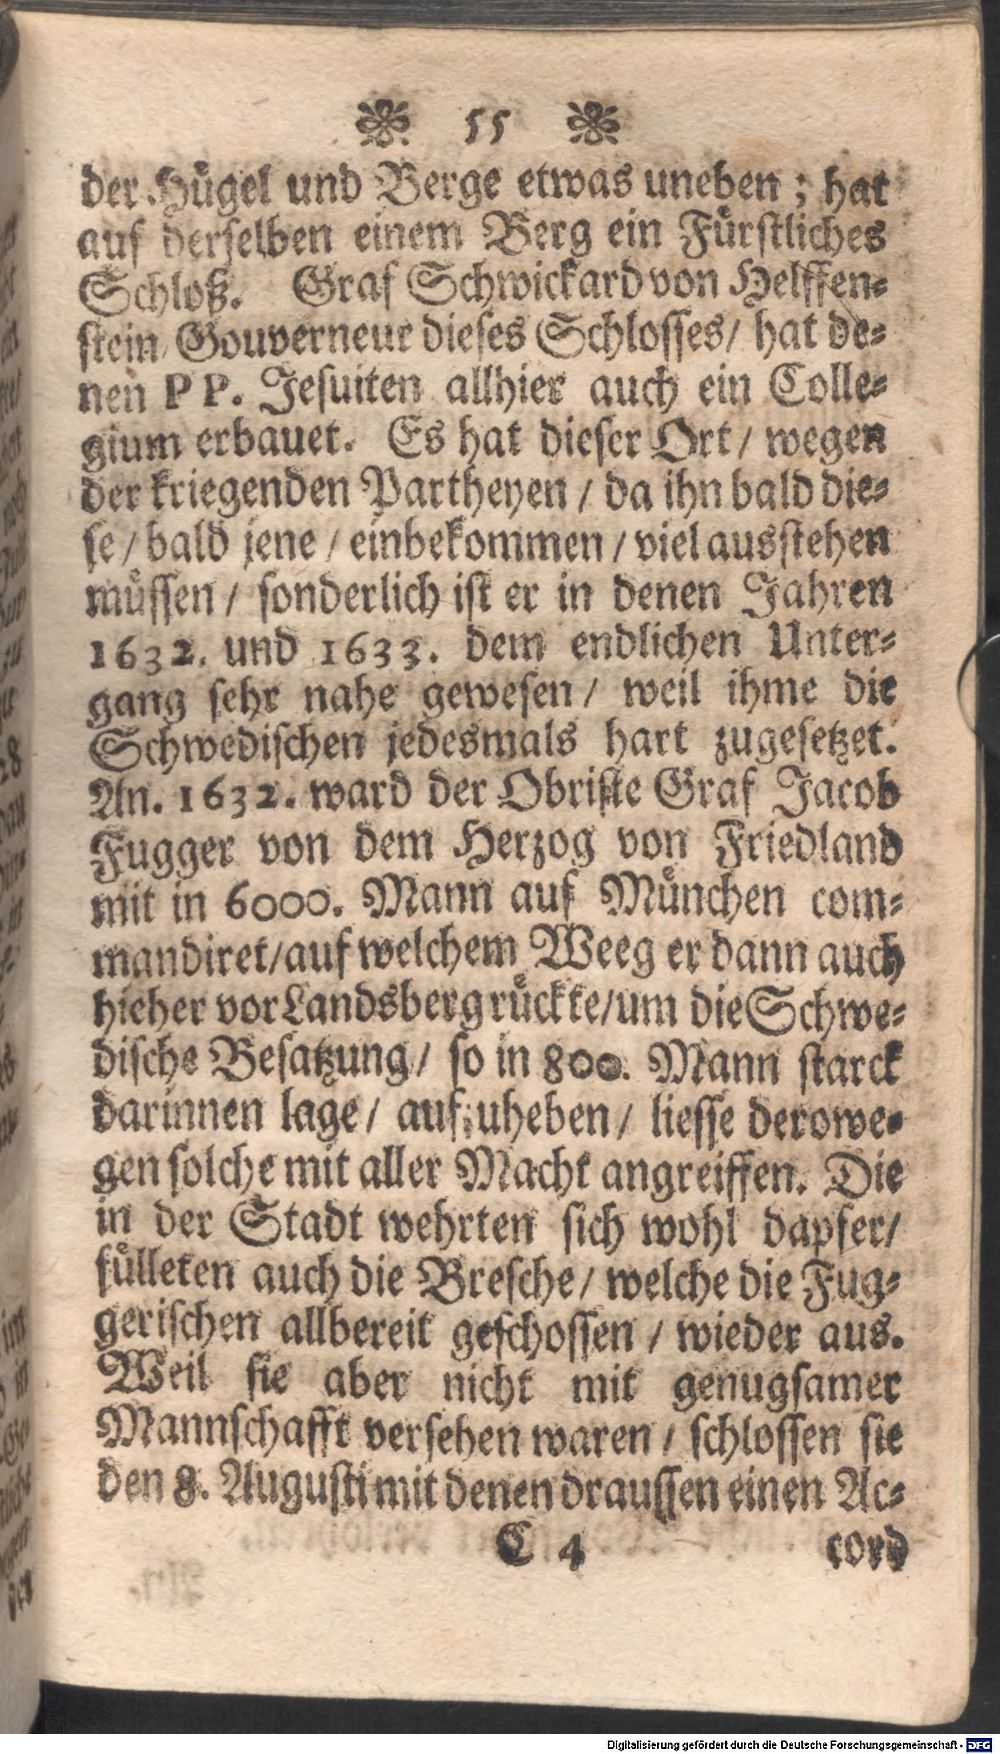 55
der Hügel und Berge etwas uneben; hat
auf derselben einem Berg ein Fürstliches
Schloß. Graf Schwickard von Helffen-
stein Gouverneur dieses Schlosses/ hat de-
nen PP. Jesuiten allhier auch ein Colle-
gium erbauet. Es hat dieser Ort/ wegen
der kriegenden Partheyen/ da ihn bald die-
se/ bald jene/ einbekommen/ viel ausstehen
müssen/ sonderlich ist er in denen Jahren
1632. und 1633. dem endlichen Unter-
gang sehr nahe gewesen/ weil ihme die
Schwedischen jedesmals hart zugesetzet.
An. 1632. ward der Obriste Graf Jacob
Fugger von dem Herzog von Friedland
mit in 6000. Mann auf München com-
mandiret/ auf welchem Weeg er dann auch
hieher vor Landsberg rückte/ um die Schwe-
dische Besatzung/ so in 800. Mann starck
darinnen lage/ aufzuheben/ liesse derowe-
gen solche mit aller Macht angreiffen. Die
in der Stadt wehrten sich wohl dapfer/
fülleten auch die Bresche/ welche die Fug-
gerischen allbereit geschossen/ wieder aus.
Weil sie aber nicht mit genugsamer
Mannschafft versehen waren/ schlossen sie
den 8. Augusti mit denen draussen einen Ac-
C 4 cord
Digitalisierung gefördert durch die Deutsche Forschungsgemeinschaft - DFG